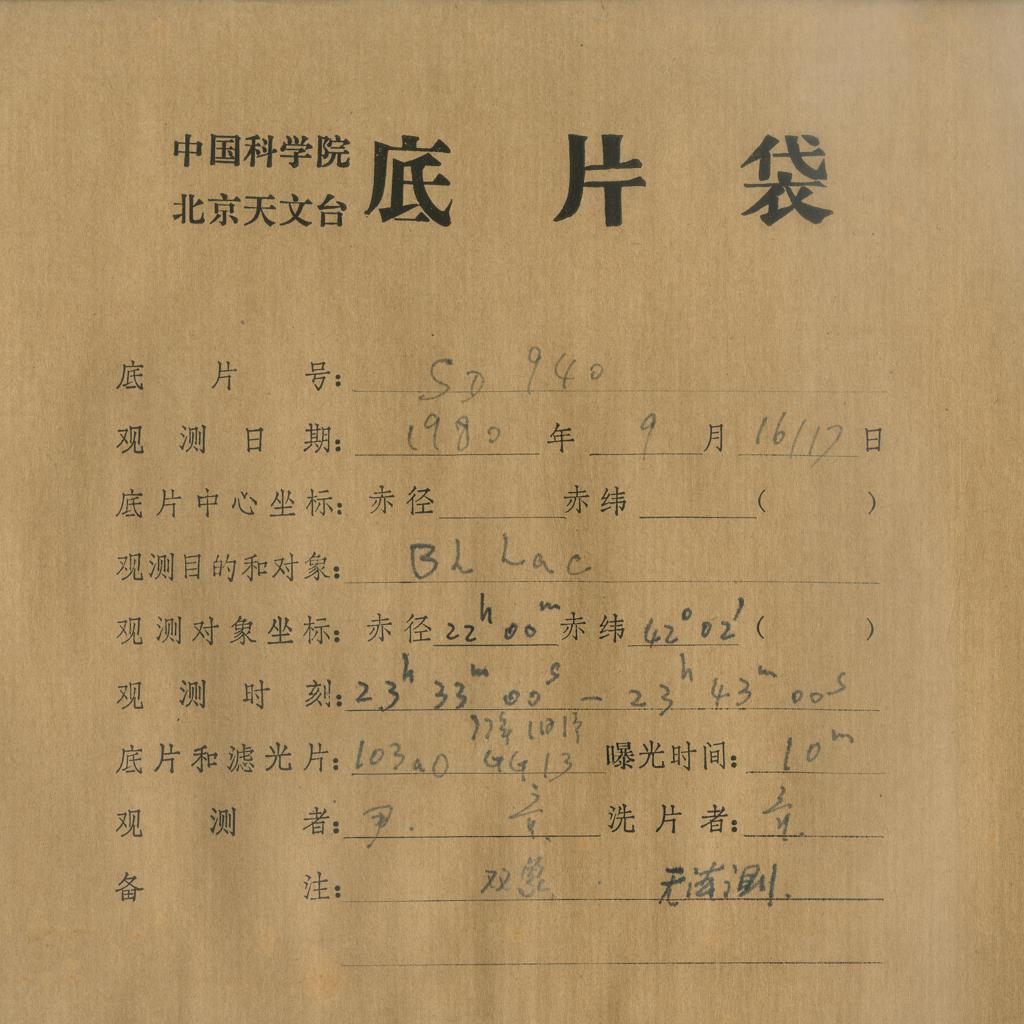 中国科学院
北京天文台
底片袋
底片号: SD 940
观测日期: 1980 年 9 月 16/17 日
底片中心坐标: 赤径 赤纬 ( )
观测目的和对象: BL Lac
观测对象坐标: 赤径 22h 00m 赤纬 42° 02′ ( )
观测时刻: 23h 33m 00s — 23h 43m 00s
底片和滤光片: 103aO GG13 曝光时间: 10m
观测者: 洗片者:
备注: 双象 无法测.